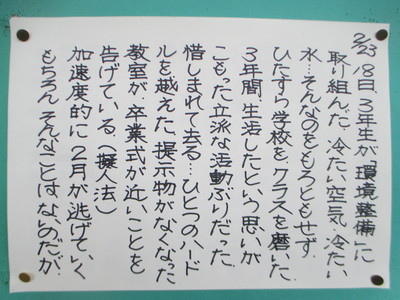 2/23 18日、3年生が「環境整備」に
取り組んだ。冷たい空気、冷たい
水…そんなのをもろともせず、
ひたすら学校を、クラスを磨いた。
3年間、生活したという思いが
こもった立派な活動ぶりだった。
惜しまれて去る…ひとつのハード
ルを越えた。掲示物がなくなった
教室が、卒業式が近いことを
告げている。(擬人法)
加速度的に2月が逃げていく
もちろん、そんなことはないのだが。